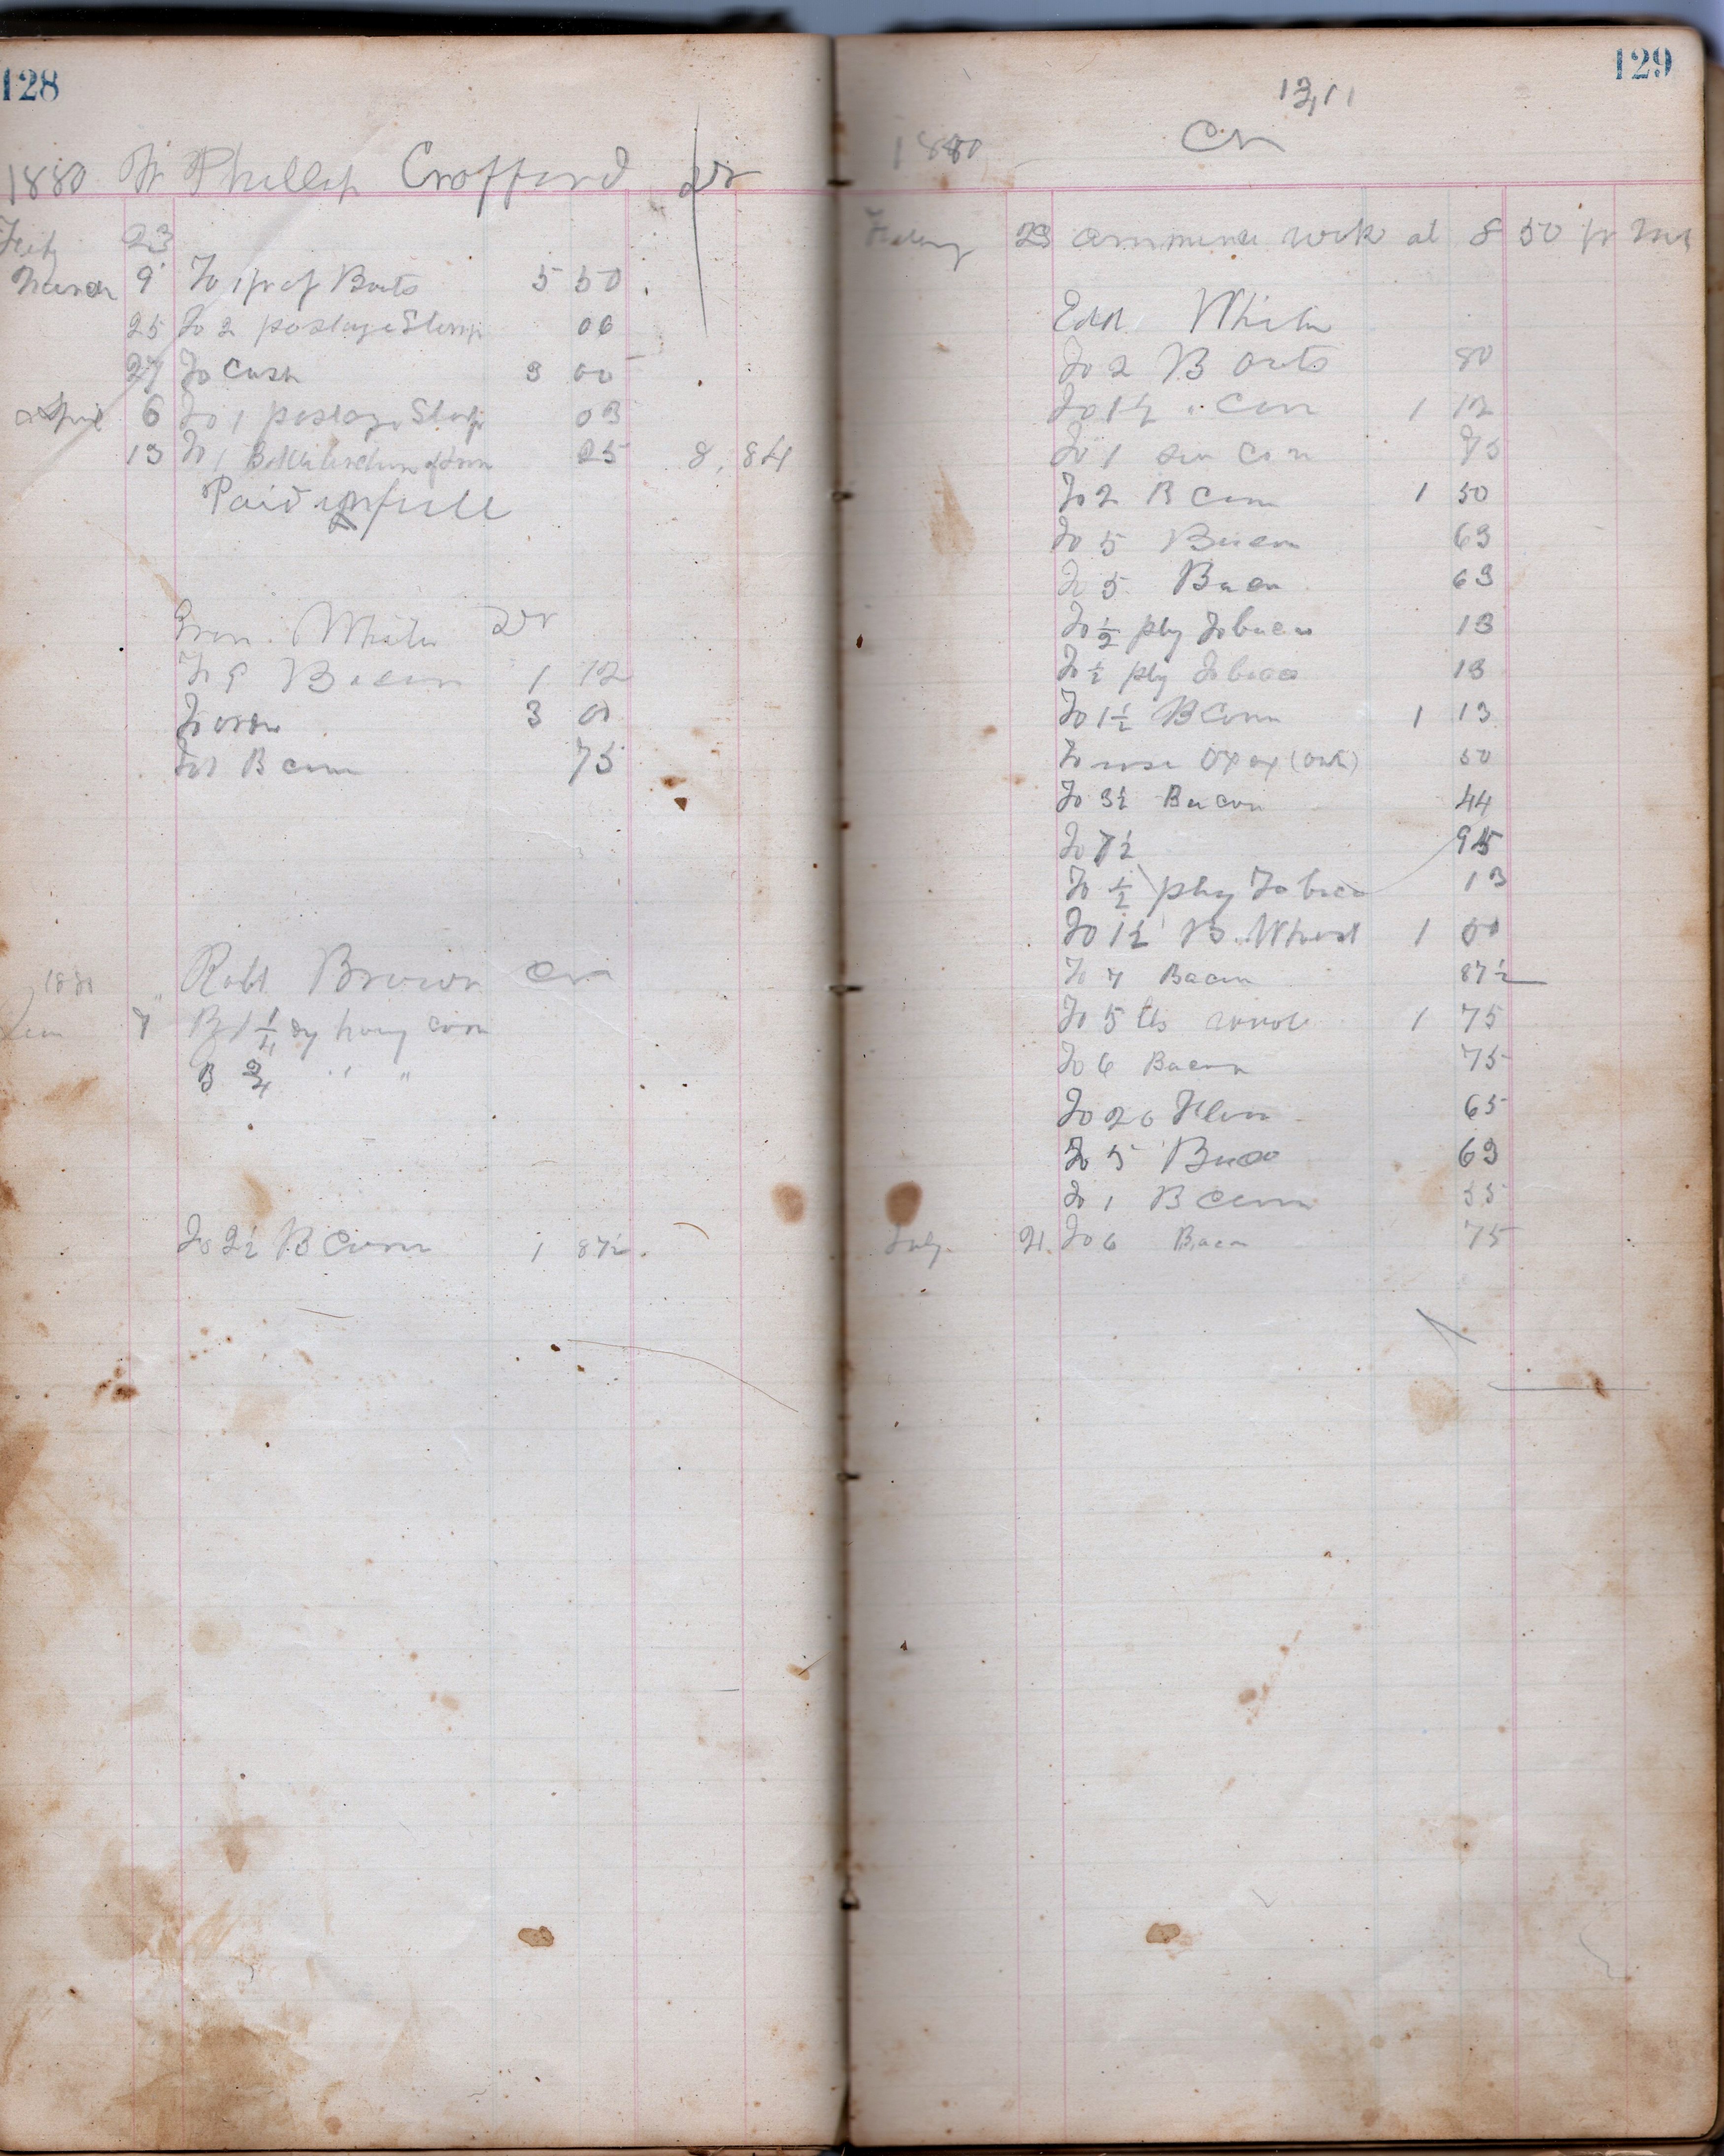 128
1880 Phillip Crofford Dr
Feb 23
March 9 To 1 pr of Boots 5 50
25 To 2 postage Stamp 06
27 To Cash 3 00
April 6 To 1 postage Stamp 03
13 To 1 Bottle of Iron 25 8,84
Paid in full
White Dr
To 9 Bacon 1 12
To 3 00
To 1 B corn 75
Robt Brown Cr
7 B 1 1/4 corn
B 3/4 " "
To 2½ B Corn 1 87½
129
13,11
1880 Cr
23 work at 8 50 pr
White
To 2 B oats 80
To 1½ " Corn 1 12
To 1 Corn 75
To 2 B Corn 1 50
To 5 Bacon 63
To 5 Bacon 63
To ½ plug Tobacco 13
To ½ plug Tobacco 13
To 1½ B Corn 1 13
To use of ox 50
To 3½ Bacon 44
To 7½ 95
To ½ plug Tobacco 13
To 1½ B. Wheat 1 00
To 7 Bacon 87½
To 5 lbs wool 1 75
To 6 Bacon 75
To 20 Flour 65
To 5 Bacon 63
To 1 B Corn 55
July 21 To 6 Bacon 75